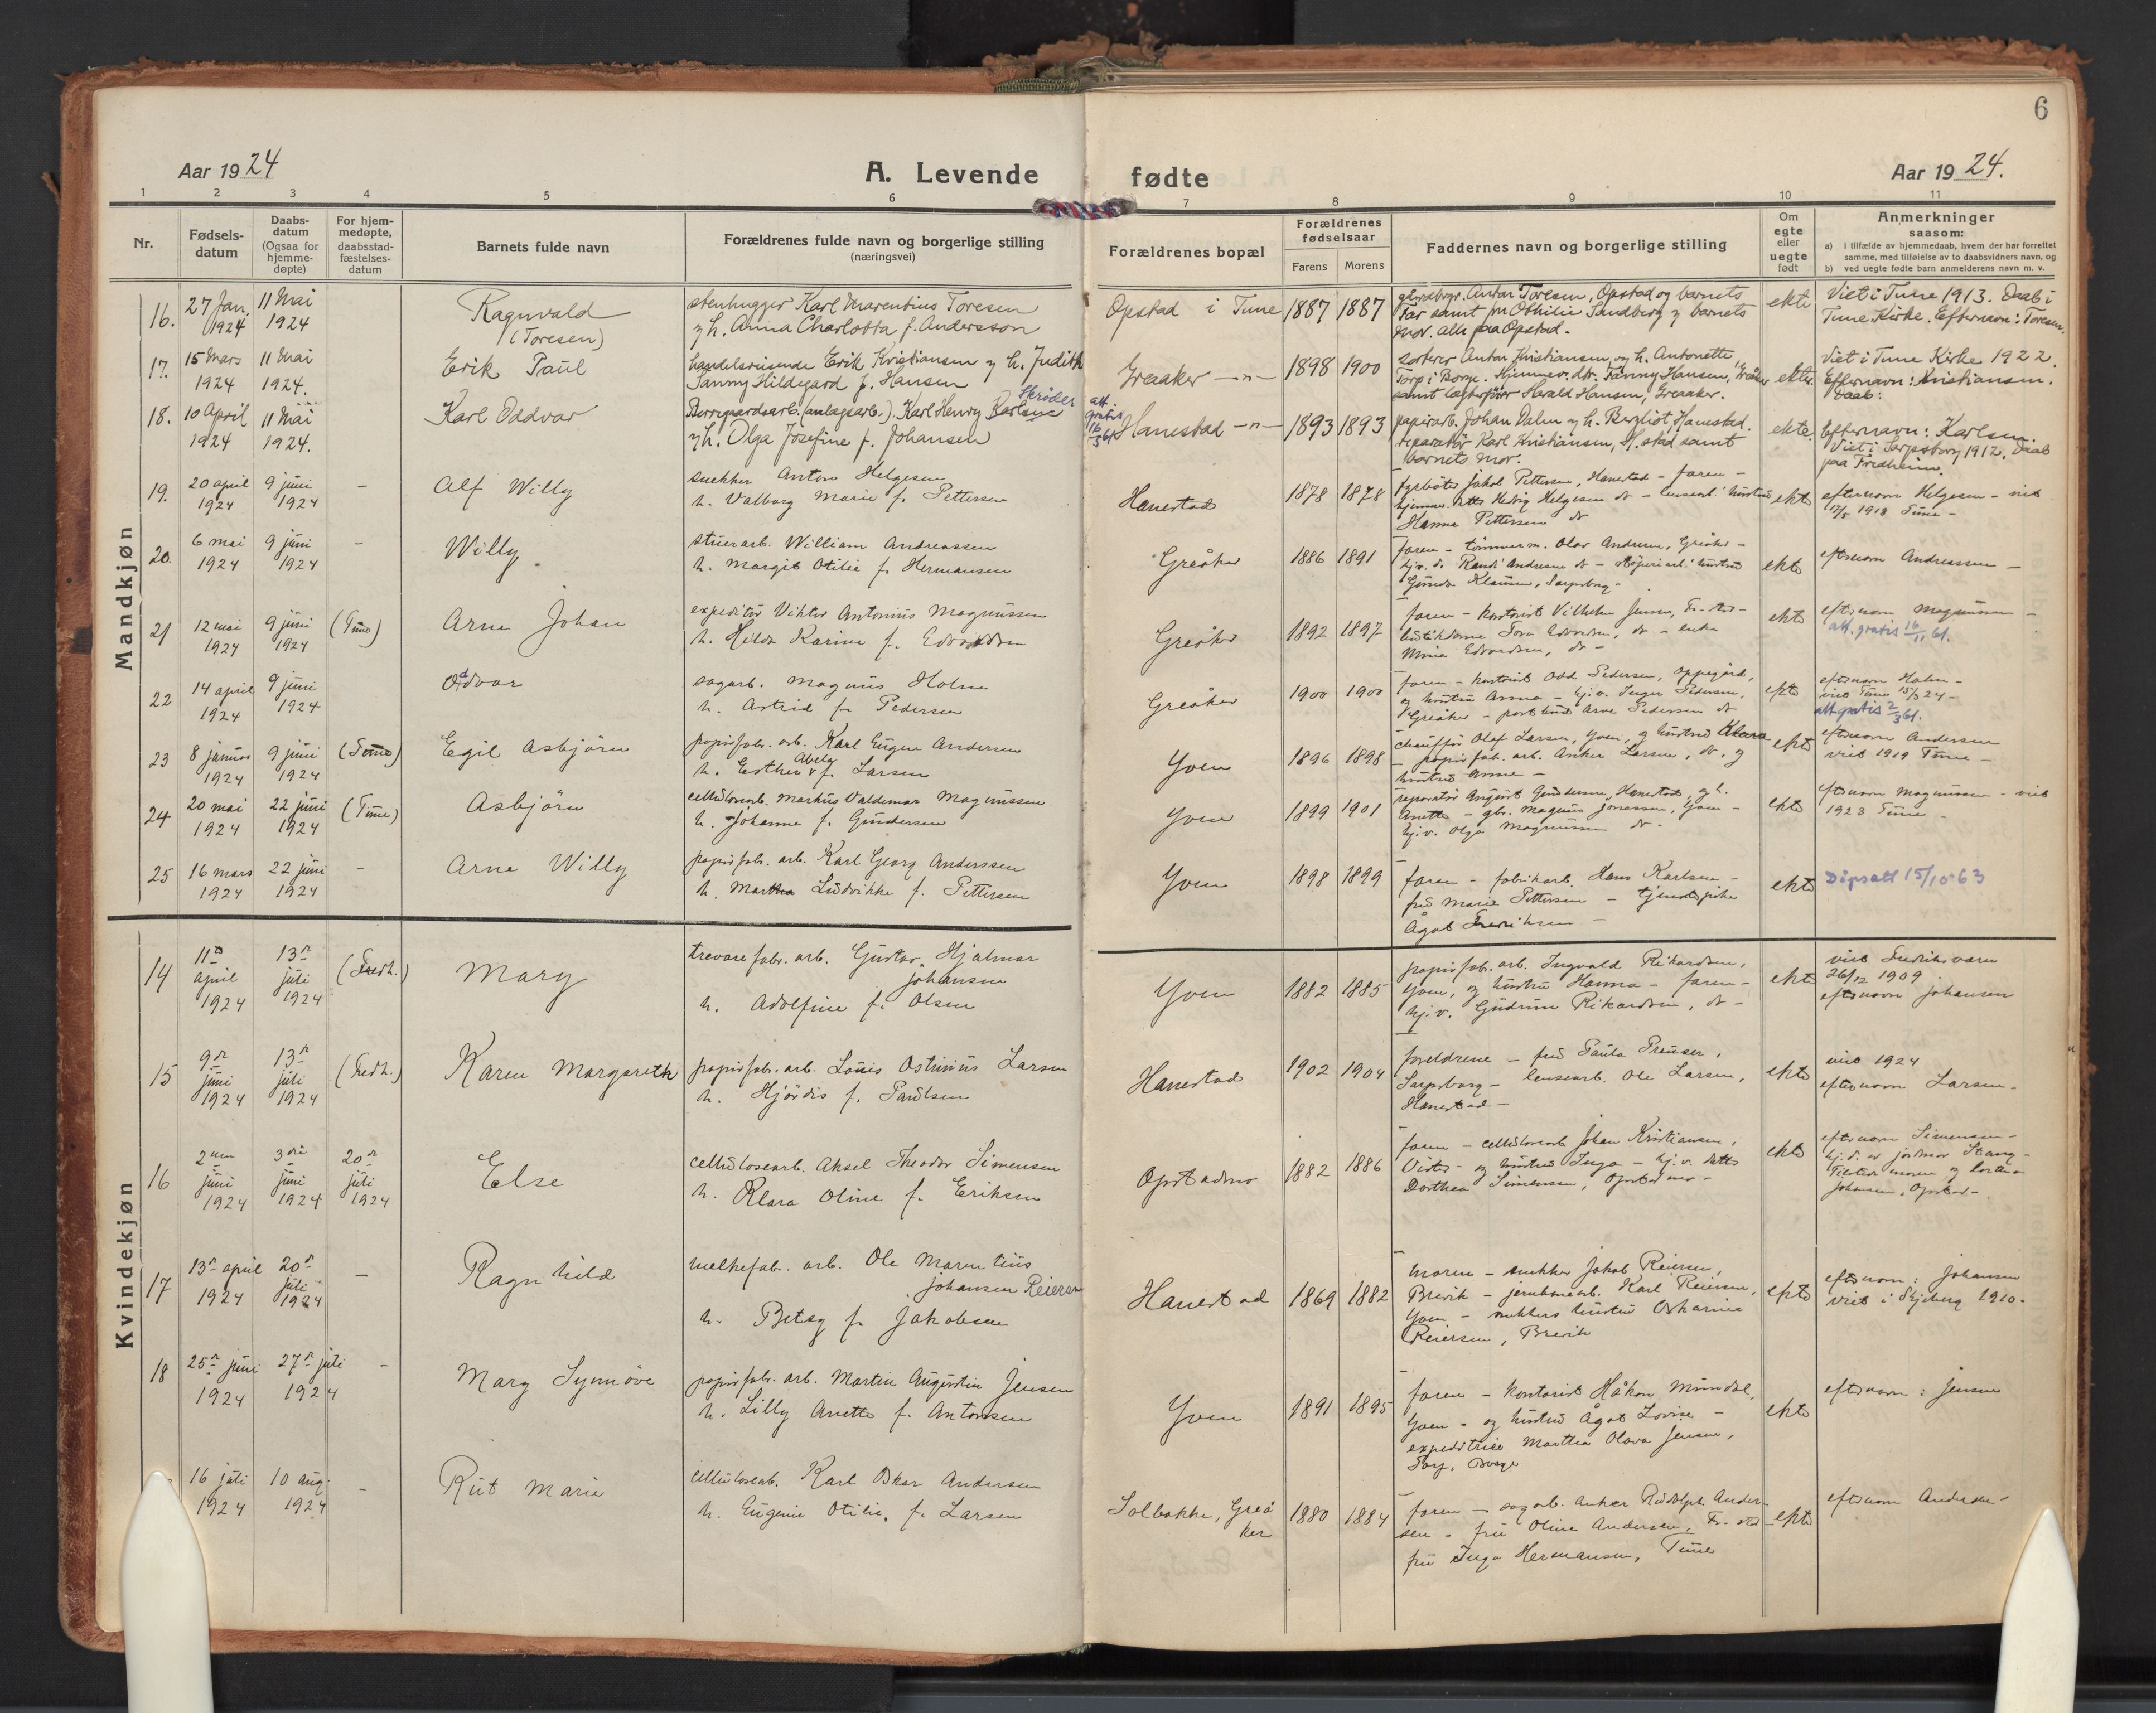 6
Aar 1924
A. Levende
fødte
Aar 1924.
1 2 3 4 5 6 7 8 9 10 11
Nr.
Fødsels-
datum
Daabs-
datum
(Ogsaa for
hjemme-
døpte)
For hjem-
medøpte,
daabsstad-
fæstelses-
datum
Barnets fulde navn
Forældrenes fulde navn og borgerlige stilling
(næringsvei)
Forældrenes bopæl
Forældrenes
fødselsaar
Farens Morens
Faddernes navn og borgerlige stilling
Om
egte
eller
uegte
født
Anmerkninger
saasom:
a) i tilfælde av hjemmedaab, hvem der har forrettet
samme, med tilføielse av to daabsvidners navn, og
b) ved uegte fødte barn anmelderens navn m. v.
Mandkjøn
16.
27 Jan.
1924
11 Mai
1924
Ragnvald
(Toresen)
stenhugger Karl Marentius Toresen
og h. Anna Charlotta f. Andersson
Opstad i Tune
1887 1887
Anton Toresen, Opstad og barnets
Far samt Othilie Sandberg og barnets
Mor. alle paa Opstad.
ekte
Viet i Tune 1913. Daab i
Tune Kirke. Efternavn: Toresen.
17.
15 Mars
1924
11 Mai
1924.
Erik Paul
handelsreisende Erik Kristiansen og h. Judith
Fanny Hildegard f. Hansen
Greaaker -"-
1898 1900
Anton Kristiansen og h. Antonette,
Torp i Borge. Hjemmev. dtr. Fanny Hansen, Greåker
samt Harald Hansen, Greaaker.
ekte
Viet i Tune Kirke 1922.
Efternavn: Kristiansen.
Daab:
18.
10 April
1924
11 Mai
1924.
Karl Oddvar
(anlægsarb.) Karl Henry Karlsen
Skrøder
og h. Olga Josefine f. Johansen
att.
gratis
16/3 61
Hanestad -"-
1893 1893
papirarb. Johan Dalen og h. Bergliot Hanestad.
reparatør Karl Kristiansen, S. stad samt
barnets Mor.
ekte.
Efternavn: Karlsen.
Viet i Sarpsborg 1912. Daab
paa Fredheim.
19.
20 april
1924
9 juni
1924
-
Alf Willy
snekker Anton Helgesen
h. Valborg Marie f. Pettersen
Hanestad
1878 1878
fyrbøter Jakob Pettersen, Hanestad - faren -
hjemmev. datter Hedvig Helgesen
Hanna Pettersen
ekte
efternavn Helgesen - viet
1918 Tune -
20.
6 mai
1924
9 juni
1924
-
Willy
stuerarb. William Andreassen
h. Margit Otilie f. Hermansen
Greåker
1886 1891
faren - tømmerm. Olav Andresen, Greåker -
hj.v. d. Randi Andresen
Klausen, Sarpsborg -
ekte
efternavn Andreassen -
21
12 mai
1924
9 juni
1924
(Tune)
Arne Johan
expeditør Viktor Antonius Magnussen
h. Hilda Karine f. Edvardsen
Greåker
1892 1897
faren - kontorist Vilhelm Jensen, Fr-stad -
Edvardsen, do - enke
Edvardsen, do -
ekte
efternavn Magnussen -
att. gratis 16/11 61.
22
14 april
1924
9 juni
1924
Oddvar
sagarb. Magnus Holm
h. Astrid f. Pedersen
Greåker
1900 1900
faren - kontorist Odd Pedersen, Oppegård,
og hustru Anna - hj.v. Inger Pedersen,
Greåker - postbud Arne Pedersen do
ekte
efternavn Holm -
viet Tune 15/3 24 -
att gratis 2/3 61.
23
8 januar
1924
9 juni
1924
(Tune)
Egil Asbjørn
papirfabr. arb. Karl Eugen Andersen
h. Esther Abely f. Larsen
Yven
1896 1898
chauffør Olaf Larsen, Yven, og hustru Klara
- papirfab. arb. Anker Larsen, do, og
hustru Anne -
ekte
efternavn Andersen
viet 1919 Tune -
24
20 mai
1924
22 juni
1924
(Tune)
Asbjørn
cellulosearb. Markus Valdemar Magnussen
h. Johanne f. Gundersen
Yven
1899 1901
reparatør August Gundersen, Hanestad, og h.
Anette - gbr. Magnus Jonassen, Yven -
hj.v. Olga Magnussen do -
ekte
efternavn Magnussen - viet
1923 Tune -
25
16 mars
1924
22 juni
1924
-
Arne Willy
papirfabr. arb. Karl Georg Anderssen
h. Martha Ludvikke f. Pettersen
Yven
1898 1899
faren - fabrikarb. Hans Karlsen -
fru Marie Pettersen - tjenestepike
Ågot Fredriksen -
ekte
Dåpsatt 15/10-63
Kvindekjøn
14
11te
april
1924
13de
juli
1924
(Fredh.)
Mary
trevarefabr. arb. Gustav Hjalmar
Johansen
h. Adolfine f. Olsen
Yven
1882 1885
papirfab. arb. Ingvald Rikardsen,
Yven, og hustru Hanna - faren -
hj.v. Gudrun Rikardsen, do -
ekte
viet Fredriksværn
26/12 1909
efternavn Johansen
15
9de
juni
1924
13de
juli
1924
(Fredh.)
Karen Margareth
papirfabr. arb. Louis Ostinius Larsen
h. Hjørdis f. Paulsen
Hanestad
1902 1904
foreldrene - fru Paula Preuser,
Sarpsborg - lensearb. Ole Larsen,
Hanestad -
ekte
viet 1924
efternavn Larsen -
16
2nen
juni
1924
3dje
juni
1924
20de
juli
1924
Else
cellulosearb. Aksel Theodor Simensen
h. Klara Oline f. Eriksen
Opstadmo
1882 1886
faren - cellulosearb. Johan Kristiansen,
Vister - og hustru Inga - hj.v. datter
Dorthea Simensen, Opstadmo -
ekte
efternavn Simensen -
hj.d. av jordmor Stang -
Tilstede moren og
Johansen, Opstad -
17
13de april
1924
20de
juli
1924
-
Ragnhild
melkefab. arb. Ole Marentius
Johansen Reiersen
h. Betsy f. Jakobsen
Hanestad
1869 1882
moren - snekker Jakob Reiersen,
Brevik - jernbanearb. Karl Reiersen,
Yven - snekkers hustru Oskarine
Reiersen, Brevik
ekte
efternavn: Johansen
viet i Skjeberg 1910 -
18
25de juni
1924
27de juli
1924
-
Mary Synnøve
papirfabr. arb. Martin Augustin Jensen
h. Lilly Anette f. Antonsen
Yven
1891 1895
faren - kontorist Håkon Mundal,
Yven - og hustru Ågot Lovise -
expeditrice Martha Olava Jensen,
Torp, Borge
ekte
efternavn: Jensen
16 juli
1924
10 aug.
1924
-
Rut Marie
cellulosearb. Karl Oskar Andersen
h. Eugenie Otilie, f. Larsen
Solbakke, Greå
ker
1880 1884
faren - sagarb. Anker Rudolph Ander-
sen - fru Oline Andersen, Fr-stad -
fru Inga Hermansen, Tune
ekte
efternavn Andersen -